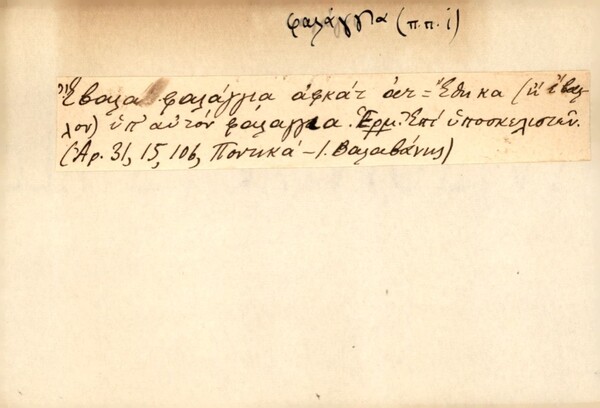 φαλάγγια (π.π. i)
Ἔβαλα φαλάγγια ἀφκάτ ἀτ = Ἔθηκα (ἢ ἔβαλ-
λον) ὑπ' αὐτόν φαλαγγια. Ἑρμ. Ἐπί ὑποσκελιστῶν.
(Ἀρ. 31, 15, 106, Ποντικά - Ι. Βαλαβάνης)